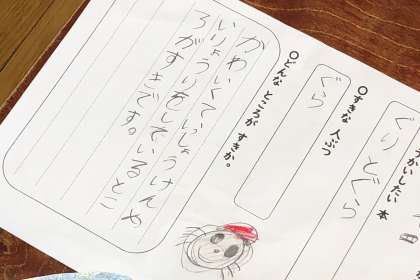 うかいしたい 本
ぐりとぐら
○すきな 人ぶつ
ぐら
○どんな ところが すきか。
かわいくていっしょうけんめ
いりょうりをしているとこ
ろがすきです。